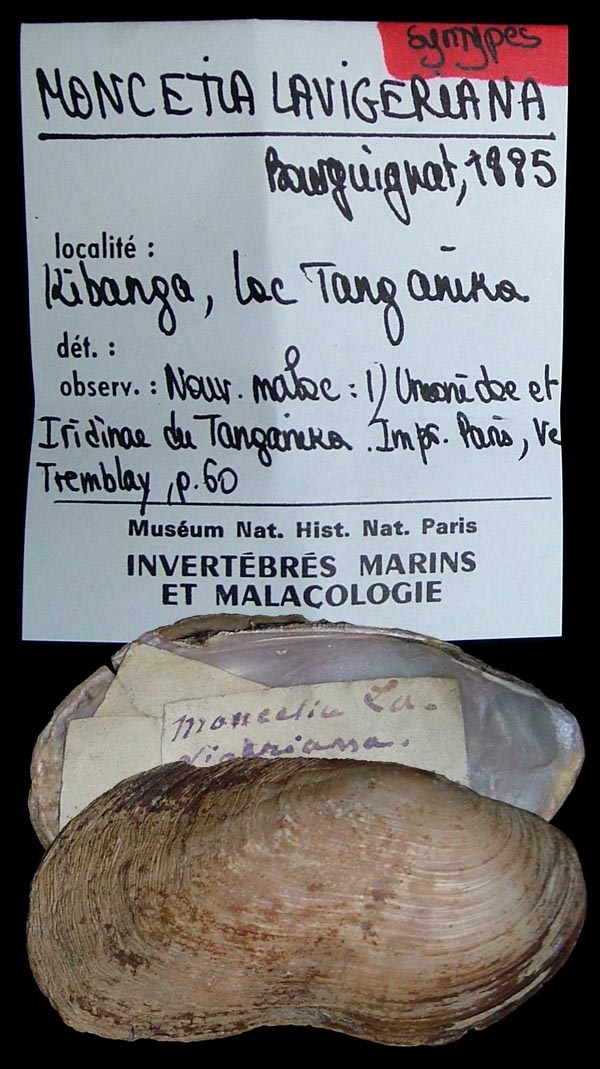 Syntypes
MONCETIA LAVIGERIANA
Bourguignat, 1885
localité :
Kibanga, lac Tanganika
dét. :
observ. : Nouv. malac : 1) Unionidae et
Iridinae du Tanganika . Impr. Paris, Ve
Tremblay, p. 60
Muséum Nat. Hist. Nat. Paris
INVERTÉBRÉS MARINS
ET MALACOLOGIE
moncetia La-
vigeriana.